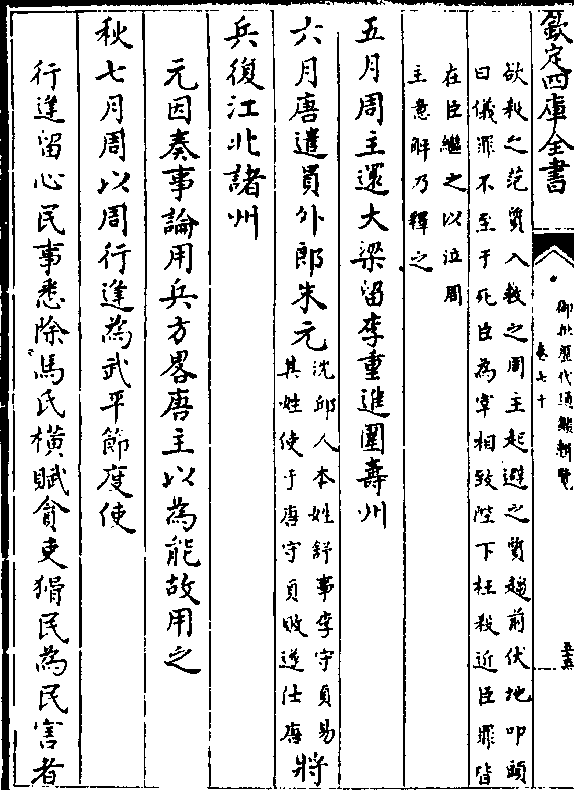 欽定四庫全書
御批歷代通鑑輯覽
卷七十
五
欲救之范質入救之周主起避之質趨前伏地叩頭
曰儀罪不至于死臣為宰相致陛下枉殺近臣罪皆
在臣繼之以泣周
主意解乃釋之
五月周主還大梁留李重進圍壽州
六月唐遣員外郎朱元
沈邱人本姓舒事李守貞易
其姓使于唐守貞敗遂仕唐
將
兵復江北諸州
元因奏事論用兵方畧唐主以為能故用之
秋七月周以周行逢為武平節度使
行逢留心民事悉除馬氏橫賦貪吏猾民為民害者